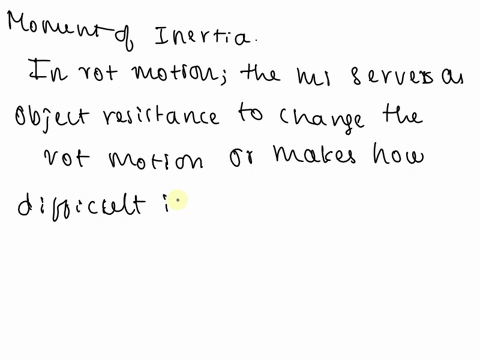 Moment of Inertia.
In rot motion; the MI serves as
object resistance to change the
rot motion or makes how
difficult i